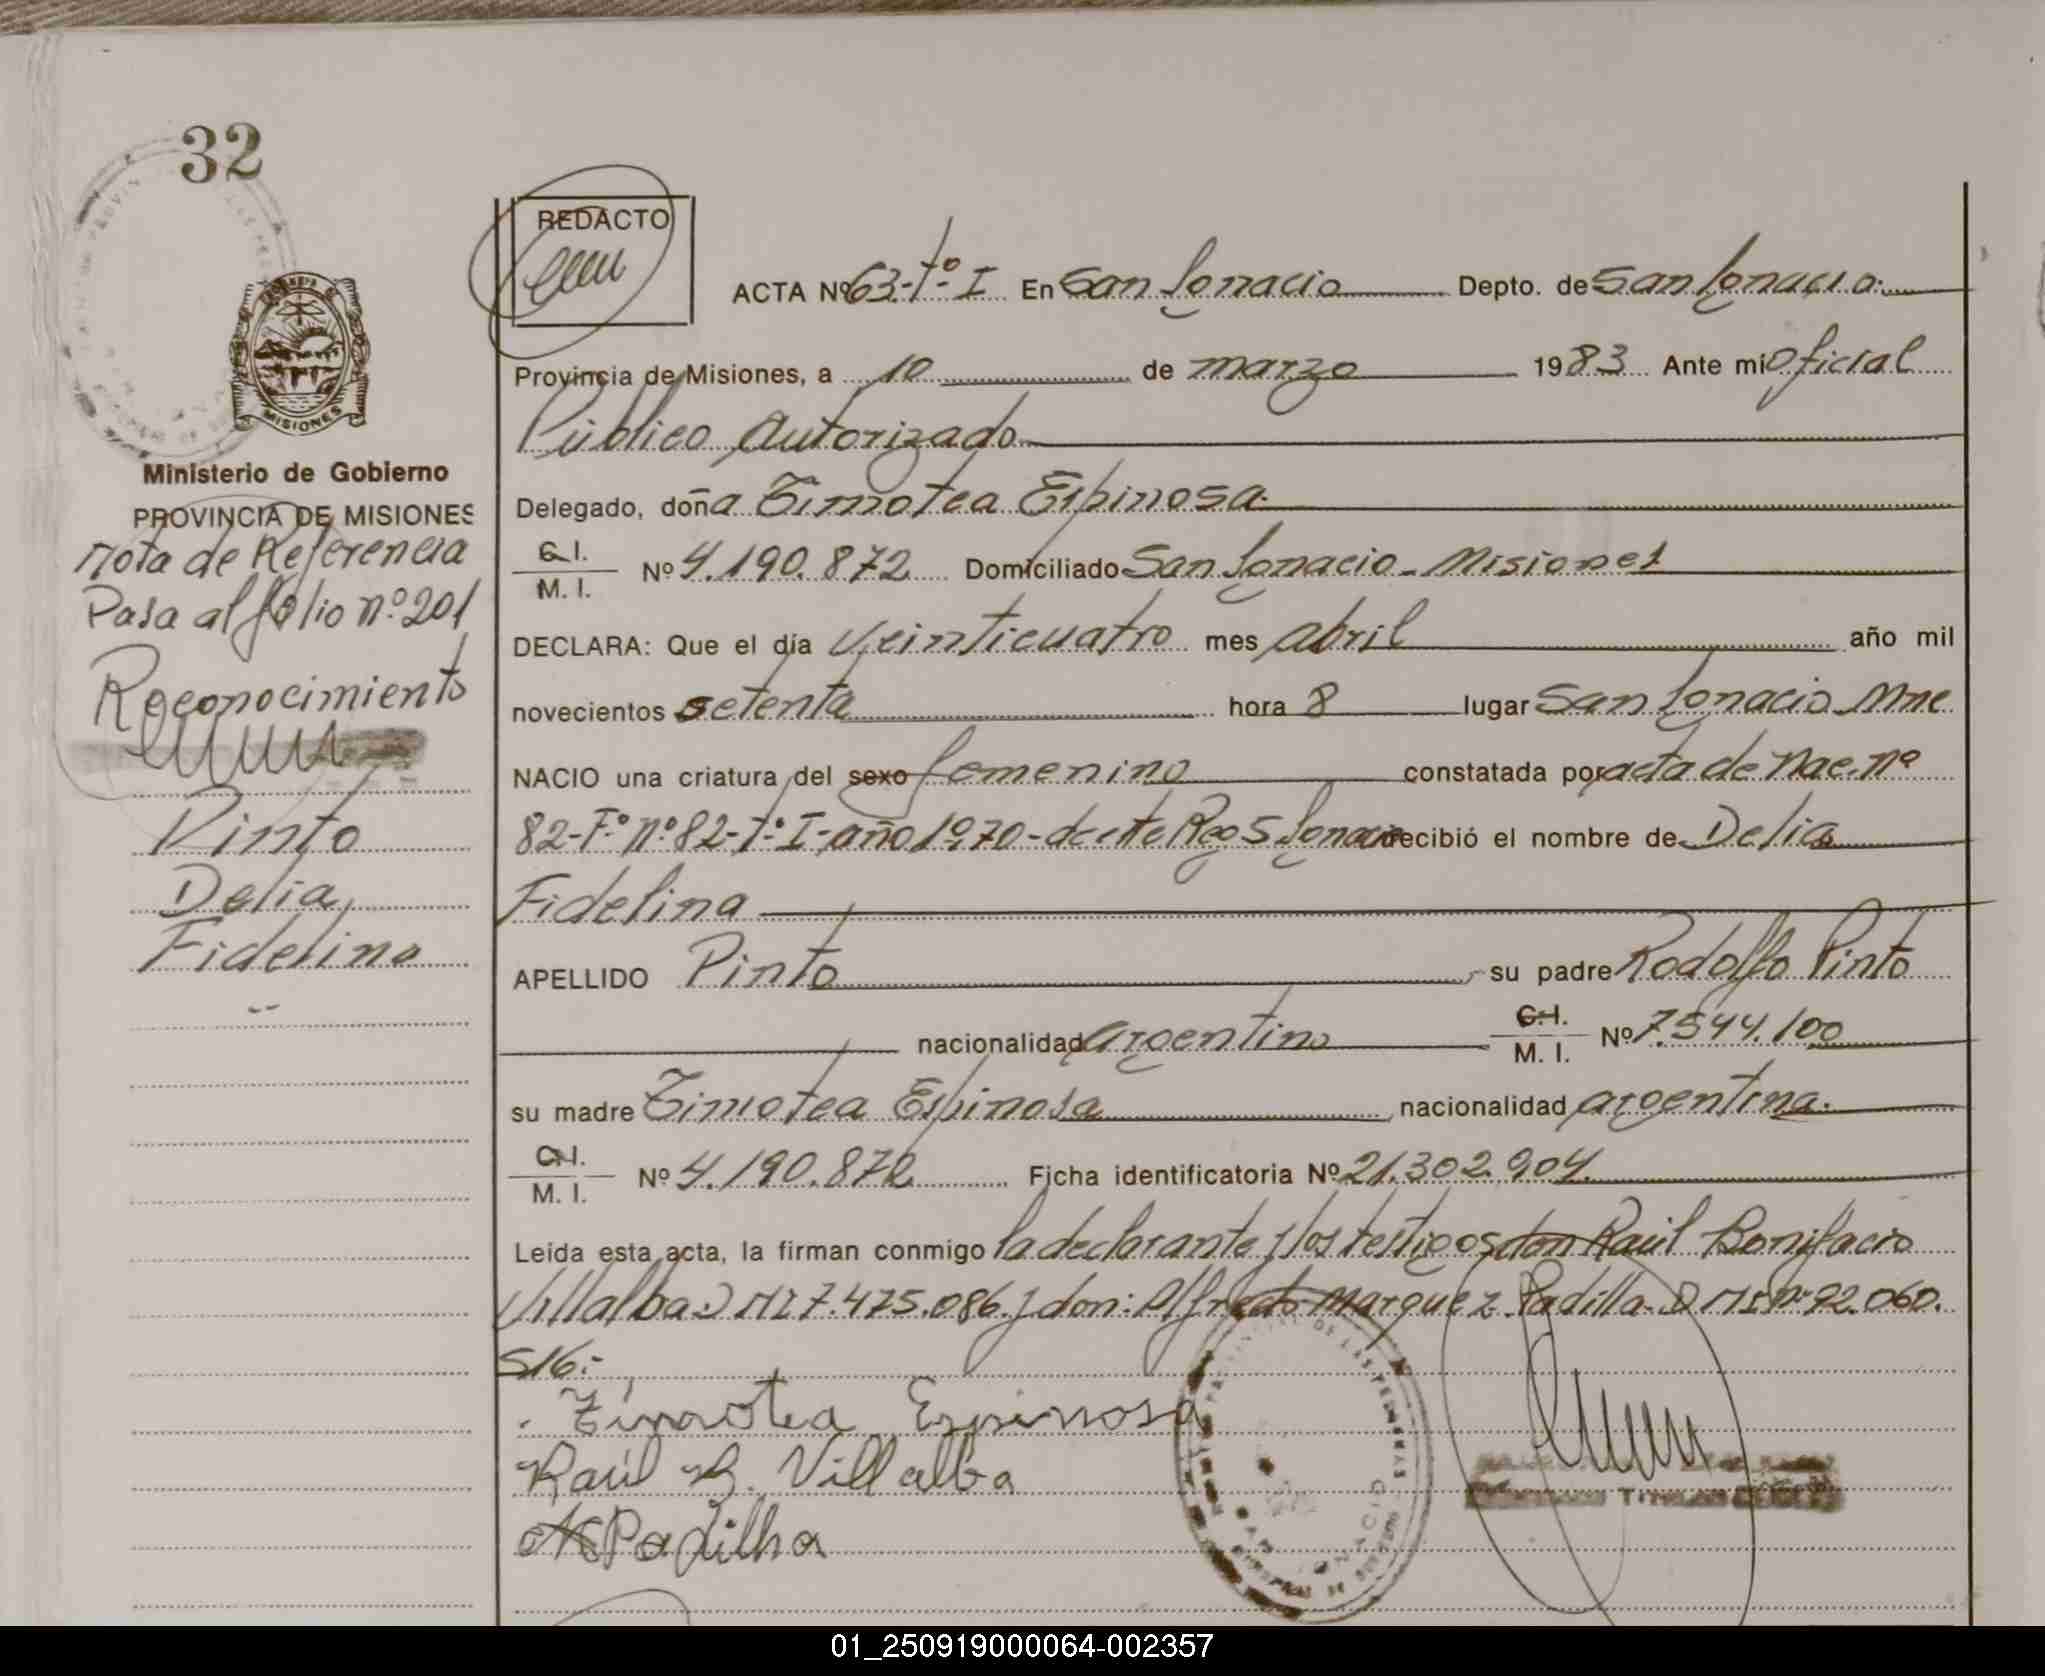 32
REDACTO
ACTA Nº 63-Tº-I En San Ignacio Depto. de San Ignacio.
Provincia de Misiones, a 10 de marzo 1983 Ante mi Oficial
Público Autorizado
Delegado, doña Timotea Espinosa.
C.I.
M. I. Nº 4.190.872 Domiciliado San Ignacio - Misiones
DECLARA: Que el día Veinticuatro mes abril año mil
novecientos setenta hora 8 lugar San Ignacio Mnes
NACIO una criatura del sexo femenino constatada por acta de Nac. nº
82-Fº nº 82-Tº I-año 1970-de este Reg S Ignacio recibió el nombre de Delia
Fidelina
APELLIDO Pinto su padre Rodolfo Pinto
nacionalidad argentino C.I.
M. I. Nº 7.544.100
su madre Timotea Espinosa nacionalidad argentina.
C.I.
M. I. Nº 4.190.872 Ficha identificatoria Nº 21.302.904.
Leída esta acta, la firman conmigo la declarante y los testigos don Raúl Bonifacio
Villalba D MI 7.475.086 y don: Alfredo Marquez Padilla. D M I Nº 92.060.
516.-
Timotea Espinosa
Raúl B. Villalba
Padilha
MISIONES
Ministerio de Gobierno
PROVINCIA DE MISIONES
Nota de Referencia
Pasa al folio nº 201
Reconocimiento
Pinto
Delia
Fidelina
01_250919000064-002357